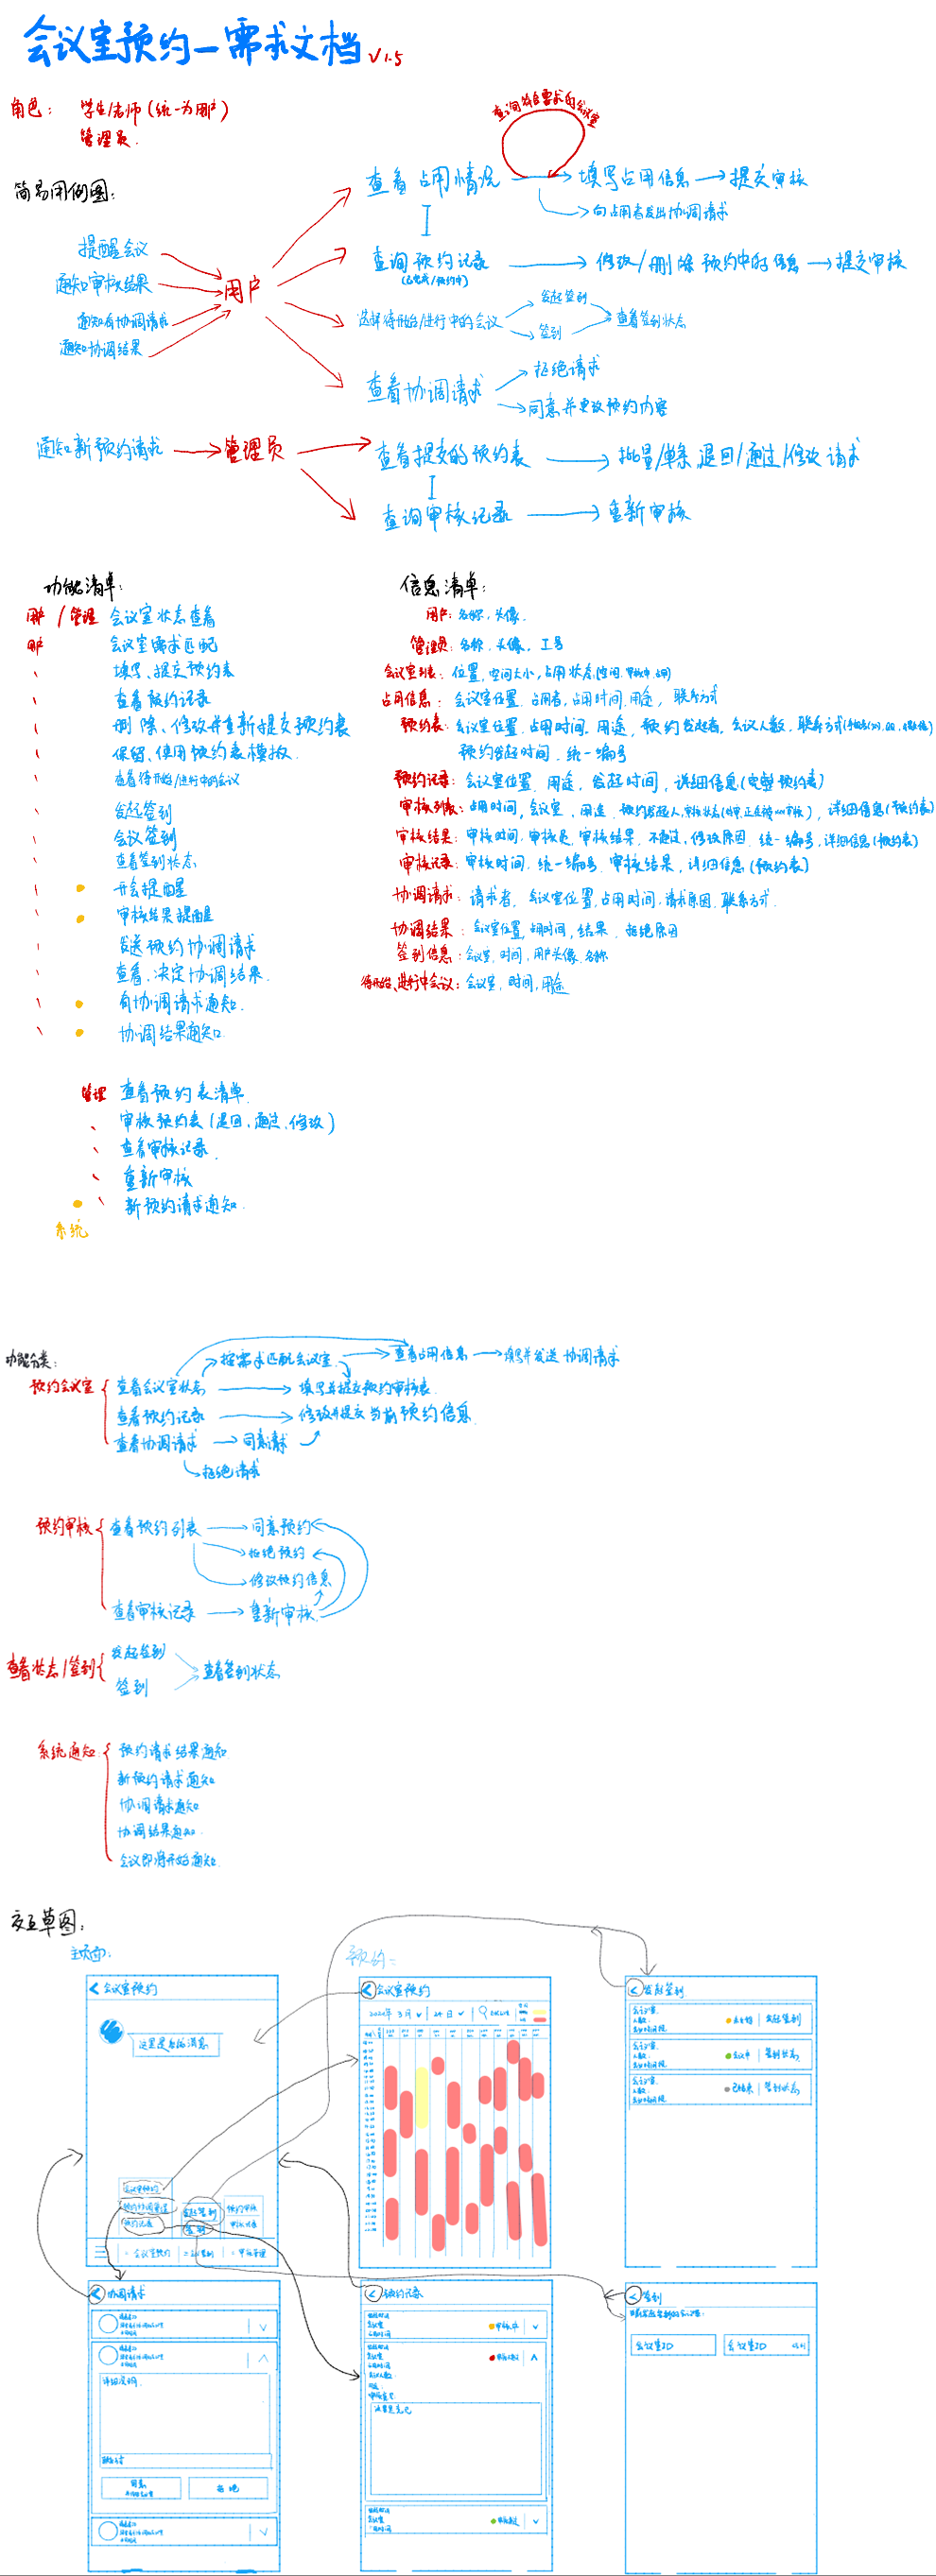 会议室预约—需求文档 V1.5
角色: 学生/老师(统一为用户)
管理员.
查询符合需求的会议室
简易用例图:
查看占用情况 填写占用信息 提交审核
向占用者发出协调请求
提醒会议
通知审核结果
通知有协调请求
通知协调结果
用户
查询预约记录 修改/删除预约中的信息 提交审核
(已完成/预约中)
选择待开始/进行中的会议
发起签到
签到
查看签到状态
查看协调请求
拒绝请求
同意并更改预约内容
通知新预约请求 管理员
查看提交的预约表 批量/单条 退回/通过/修改 请求
查询审核记录 重新审核
功能清单:
用户 / 管理 会议室状态查看
用户 会议室需求匹配
填写、提交预约表
查看预约记录
删除、修改并重新提交预约表
保留、使用预约表模板.
查看待开始/进行中的会议
发起签到
会议签到
查看签到状态
开会提醒
审核结果提醒
发送预约协调请求
查看、决定协调结果.
有协调请求通知.
协调结果通知.
管理 查看预约表清单.
审核预约表(退回、通过、修改)
查看审核记录.
重新审核
新预约请求通知.
系统
信息清单:
用户: 名称、头像.
管理员: 名称、头像、工号
会议室列表: 位置, 空间大小, 占用状态
占用信息: 会议室位置、占用者, 占用时间, 用途, 联系方式
预约表: 会议室位置、占用时间、用途, 预约发起者, 会议人数, 联系方式
预约发起时间, 统一编号
预约记录: 会议室位置、用途, 发起时间, 详细信息(完整预约表)
审核列表: 占用时间, 会议室, 用途, 预约发起人, 审核状态 详细信息(预约表)
审核结果: 审核时间, 审核员, 审核结果, 不通过、修改原因, 统一编号, 详细信息(预约表)
审核记录: 审核时间, 统一编号, 审核结果, 详细信息(预约表)
协调请求: 请求者, 会议室位置, 占用时间, 请求原因, 联系方式.
协调结果: 会议室位置, 占用时间, 结果, 拒绝原因
签到信息: 会议室, 时间, 用户头像, 名称
待开始、进行中会议: 会议室, 时间, 用途
功能分类:
预约会议室
按需求匹配会议室 查看占用信息 填写并发送协调请求
查看会议室状态 填写并提交预约审核表.
查看预约记录 修改并提交当前预约信息
查看协调请求 同意请求
拒绝请求
预约审核
查看预约列表 同意预约
拒绝预约
修改预约信息
查看审核记录 重新审核
查看状态/签到
发起签到
签到
查看签到状态
系统通知:
预约请求结果通知
新预约请求通知
协调请求通知
协调结果通知.
会议即将开始通知.
交互草图:
主页面:
会议室预约
这里是通知消息
会议室预约
预约协调请求
预约记录
发起签到
签到
预约审核
审核记录
会议室预约
预约:
会议室预约
2021年 3月 24日
发起签到
会议室
人数:
未开始 发起签到
会议室
人数:
会议中 签到状态
会议室
人数:
已结束 签到状态
协调请求
详细说明:
联系方式
同意
拒绝
预约记录
会议室
审核中
会议室
用途:
会议室
审核通过
签到
会议室ID
会议室ID